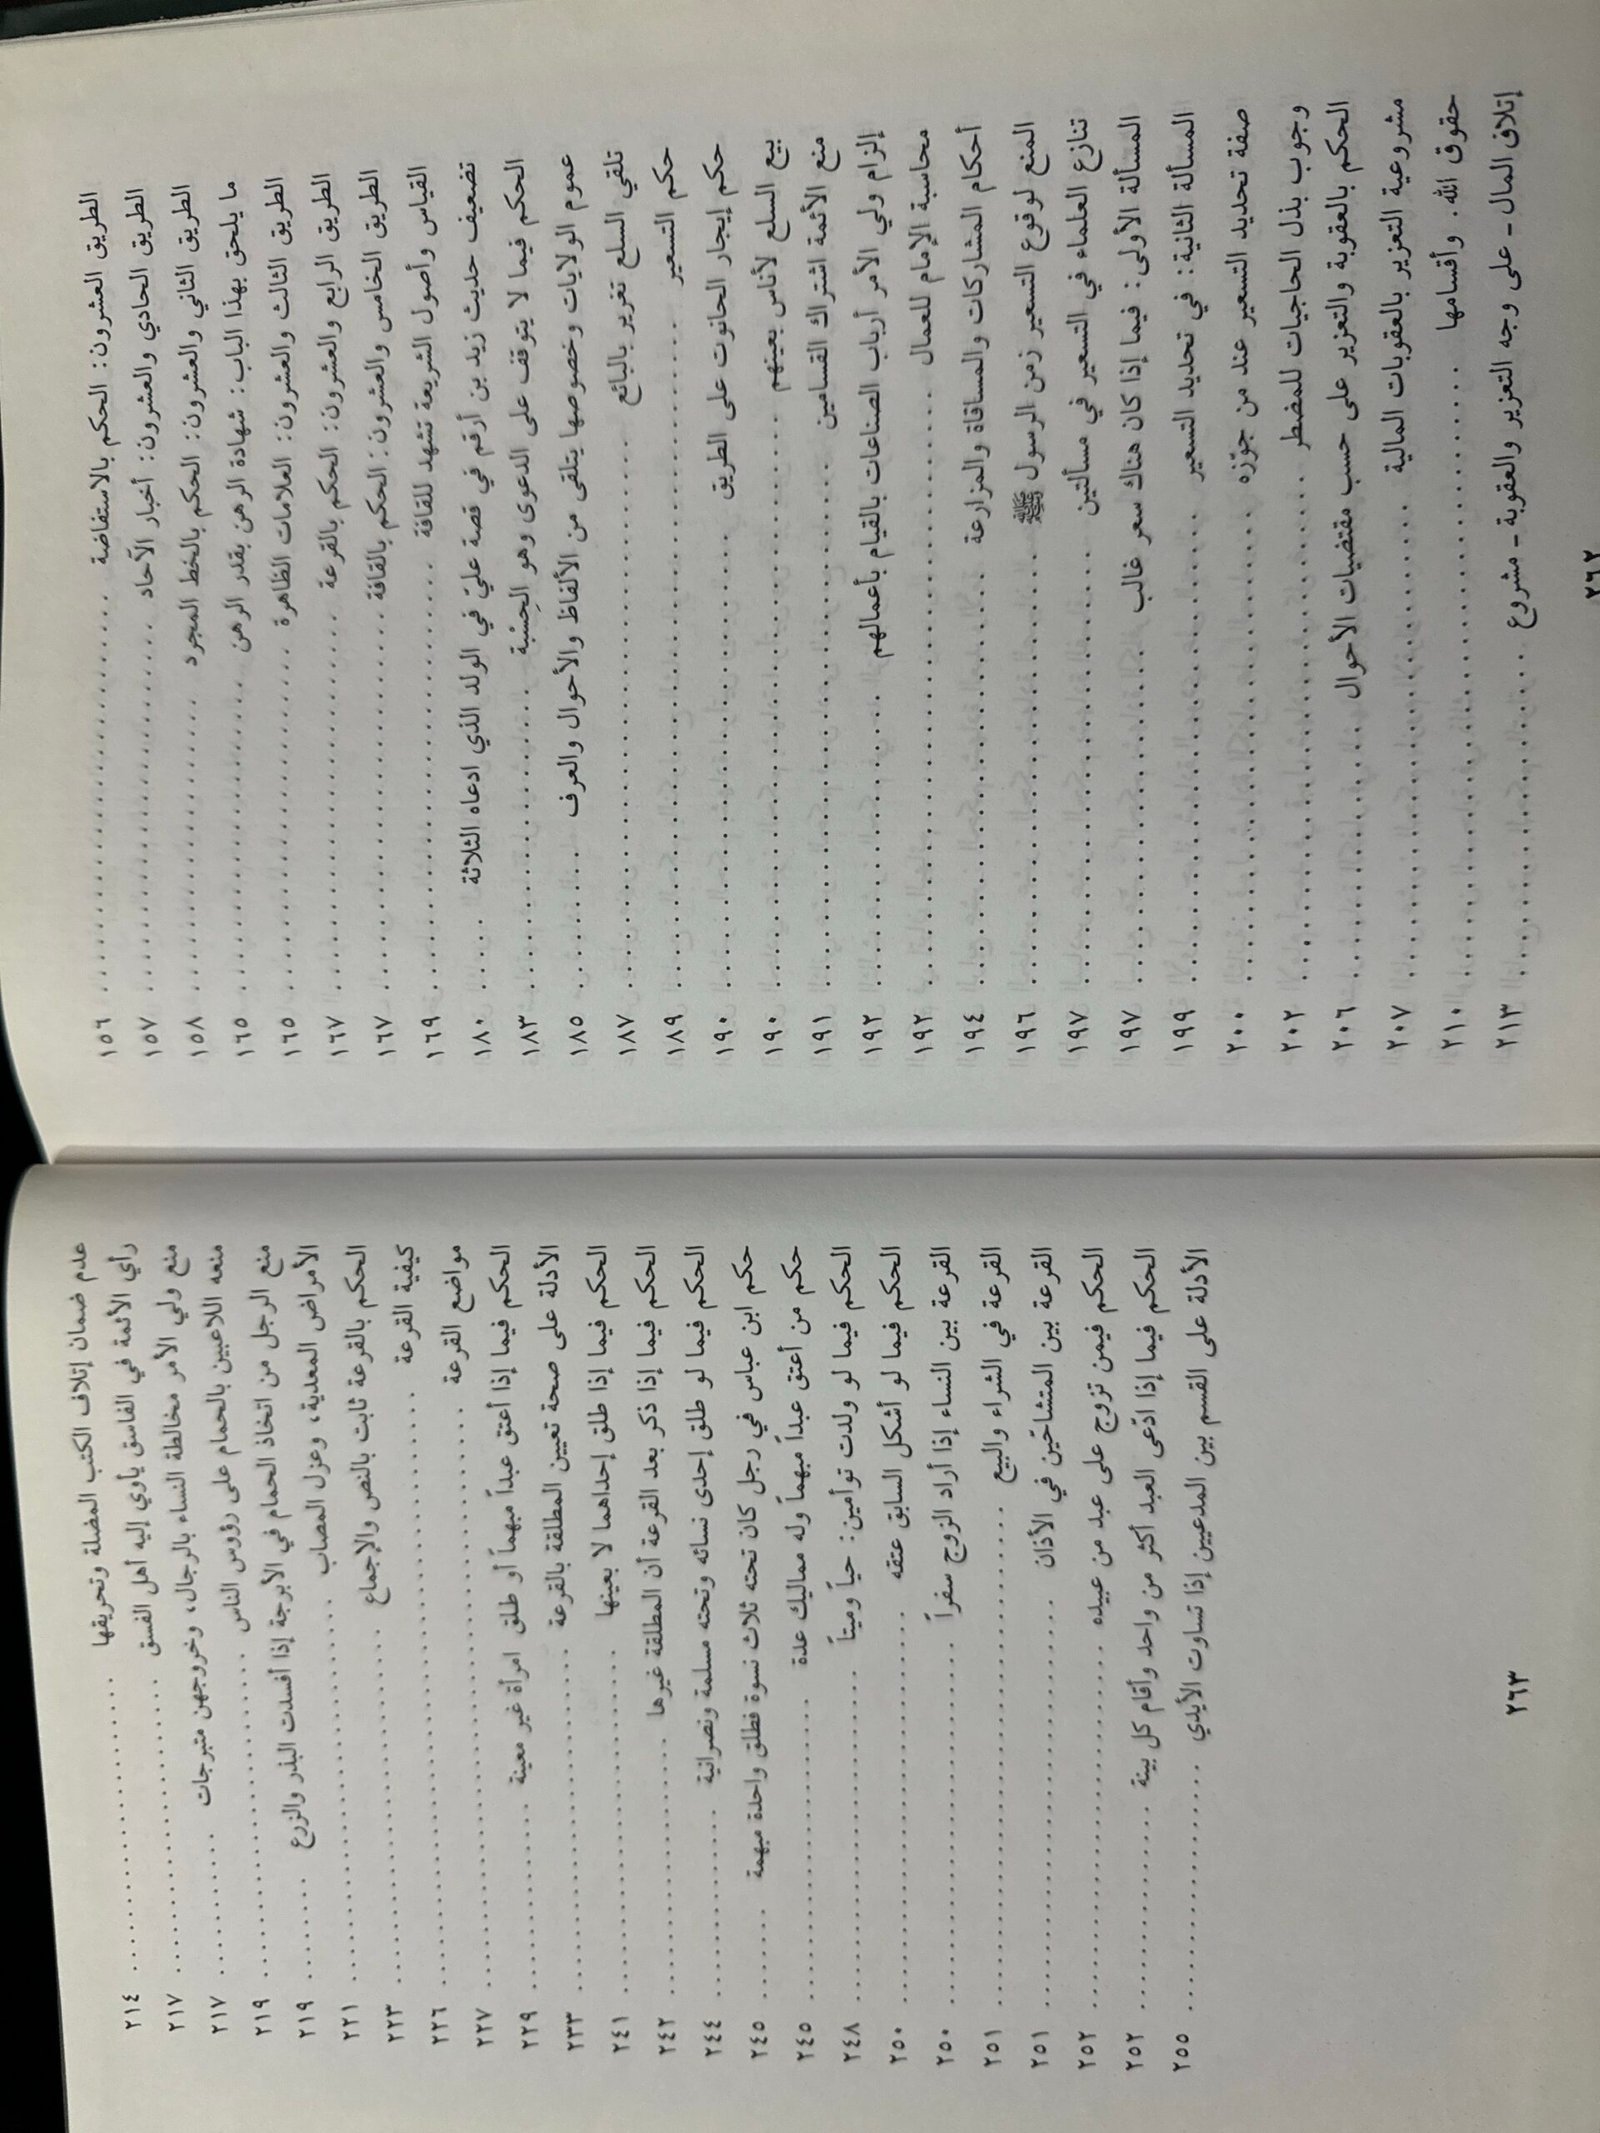 الطريق العشرون: الحكم بالاستفاضة ........ ١٥٦
الطريق الحادي والعشرون: أخبار الآحاد ........ ١٥٧
الطريق الثاني والعشرون: الحكم بالخط المجرد ........ ١٥٨
ما يلحق بهذا الباب: شهادة الرهن بقدر الرهن ........ ١٦٥
الطريق الثالث والعشرون: العلامات الظاهرة ........ ١٦٥
الطريق الرابع والعشرون: الحكم بالقرعة ........ ١٦٧
الطريق الخامس والعشرون: الحكم بالقافة ........ ١٦٧
القياس وأصول الشريعة تشهد للقافة ........ ١٦٩
تضعيف حديث زيد بن أرقم في قصة عليّ في الولد الذي ادعاه الثلاثة ........ ١٨٠
الحكم فيما لا يتوقف على الدعوى وهو الحِسْبة ........ ١٨٣
عموم الولايات وخصوصها يتلقى من الألفاظ والأحوال والعرف ........ ١٨٥
تلقي السلع تغرير بالبائع ........ ١٨٧
حكم التسعير ........ ١٨٩
حكم إيجار الحانوت على الطريق ........ ١٩٠
بيع السلع لأناس بعينهم ........ ١٩٠
منع الأئمة اشتراك القسامين ........ ١٩١
إلزام ولي الأمر أرباب الصناعات بالقيام بأعمالهم ........ ١٩٢
محاسبة الإمام للعمال ........ ١٩٢
أحكام المشاركات والمساقاة والمزارعة ........ ١٩٤
المنع لوقوع التسعير زمن الرسول ﷺ ........ ١٩٦
تنازع العلماء في التسعير في مسألتين ........ ١٩٧
المسألة الأولى: فيما إذا كان هناك سعر غالب ........ ١٩٧
المسألة الثانية: في تحديد التسعير ........ ١٩٩
صفة تحديد التسعير عند من جوّزه ........ ٢٠٠
وجوب بذل الحاجيات للمضطر ........ ٢٠٢
الحكم بالعقوبة والتعزير على حسب مقتضيات الأحوال ........ ٢٠٦
مشروعية التعزير بالعقوبات المالية ........ ٢٠٧
حقوق الله. وأقسامها ........ ٢١٠
إتلاف المال - على وجه التعزير والعقوبة - مشروع ........ ٢١٣
٢٦٢
عدم ضمان إتلاف الكتب المضلة وتحريقها ........ ٢١٤
رأي الأئمة في الفاسق يأوي إليه أهل الفسق ........ ٢١٧
منع ولي الأمر مخالطة النساء بالرجال، وخروجهن متبرجات ........ ٢١٧
منعه اللاعبين بالحمام على رؤوس الناس ........ ٢١٩
منع الرجل من اتخاذ الحمام في الأبرجة إذا أفسدت البذر والزرع ........ ٢١٩
الأمراض المعدية، وعزل المصاب ........ ٢٢١
الحكم بالقرعة ثابت بالنص والإجماع ........ ٢٢٣
كيفية القرعة ........ ٢٢٦
مواضع القرعة ........ ٢٢٧
الحكم فيما إذا أعتق عبداً مبهماً أو طلق امرأة غير معينة ........ ٢٢٩
الأدلة على صحة تعيين المطلقة بالقرعة ........ ٢٣٣
الحكم فيما إذا طلق إحداهما لا بعينها ........ ٢٤١
الحكم فيما إذا ذكر بعد القرعة أن المطلقة غيرها ........ ٢٤٢
الحكم فيما لو طلق إحدى نسائه وتحته مسلمة ونصرانية ........ ٢٤٤
حكم ابن عباس في رجل كان تحته ثلاث نسوة فطلق واحدة مبهمة ........ ٢٤٥
حكم من أعتق عبداً مبهماً وله مماليك عدة ........ ٢٤٥
الحكم فيما لو ولدت توأمين: حياً وميتاً ........ ٢٤٨
الحكم فيما لو أشكل السابق عتقه ........ ٢٥٠
القرعة بين النساء إذا أراد الزوج سفراً ........ ٢٥٠
القرعة في الشراء والبيع ........ ٢٥١
القرعة بين المتشاحّين في الأذان ........ ٢٥١
الحكم فيمن تزوج على عبد من عبيده ........ ٢٥٢
الحكم فيما إذا ادّعى العبد أكثر من واحد وأقام كل بينة ........ ٢٥٢
الأدلة على القسم بين المدعيين إذا تساوت الأيدي ........ ٢٥٥
٢٦٣